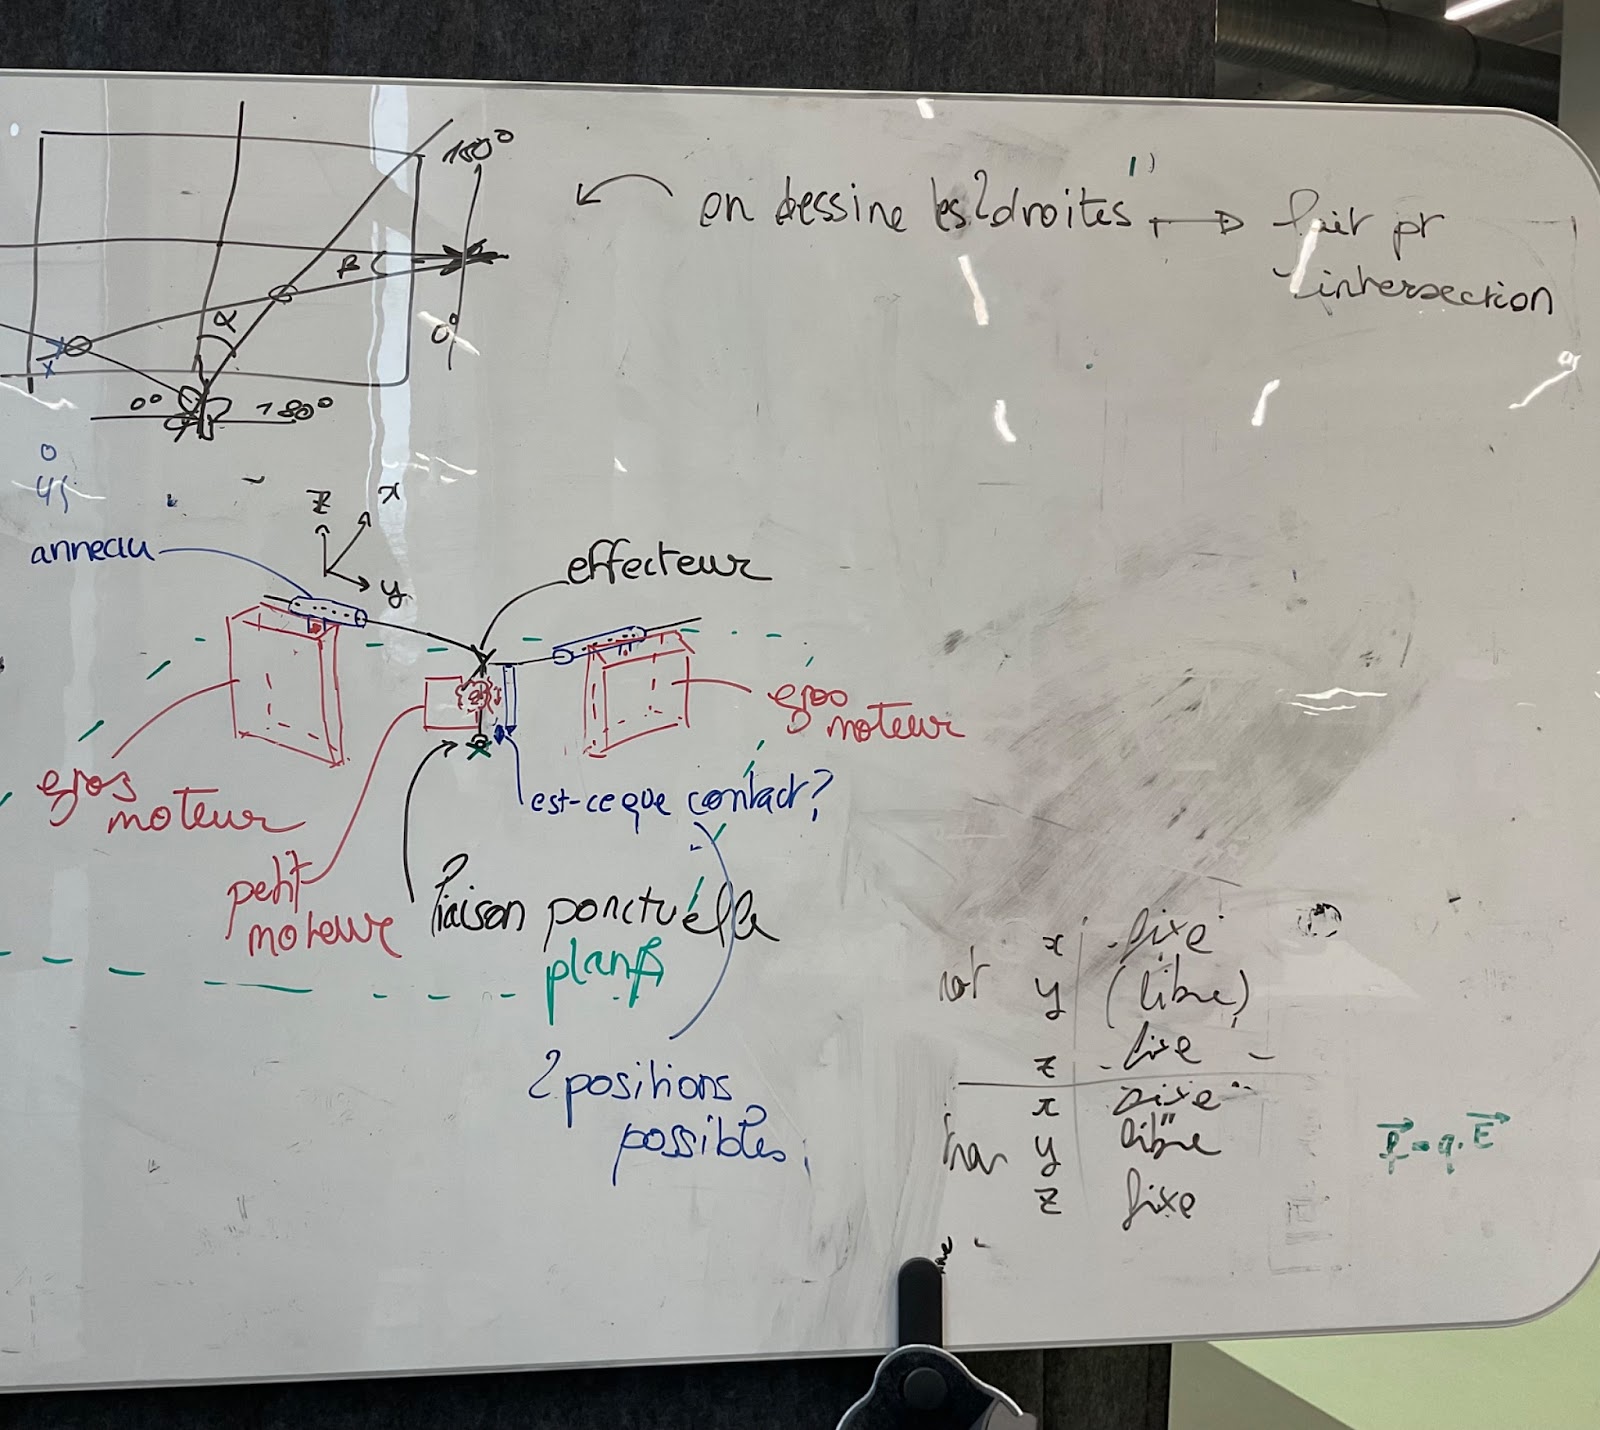 180°
1)
on dessine les 2 droites → fait pr
intersection
β
α
0°
0° 180°
x
0
45
z x
y
anneau
effecteur
gros
moteur
gros
moteur
est-ce que contact?
petit
moteur
liaison ponctuelle
plans
2 positions
possibles
x fixe
rot y (libre)
z fixe
x fixe
tran y libre
z fixe
F = q.E